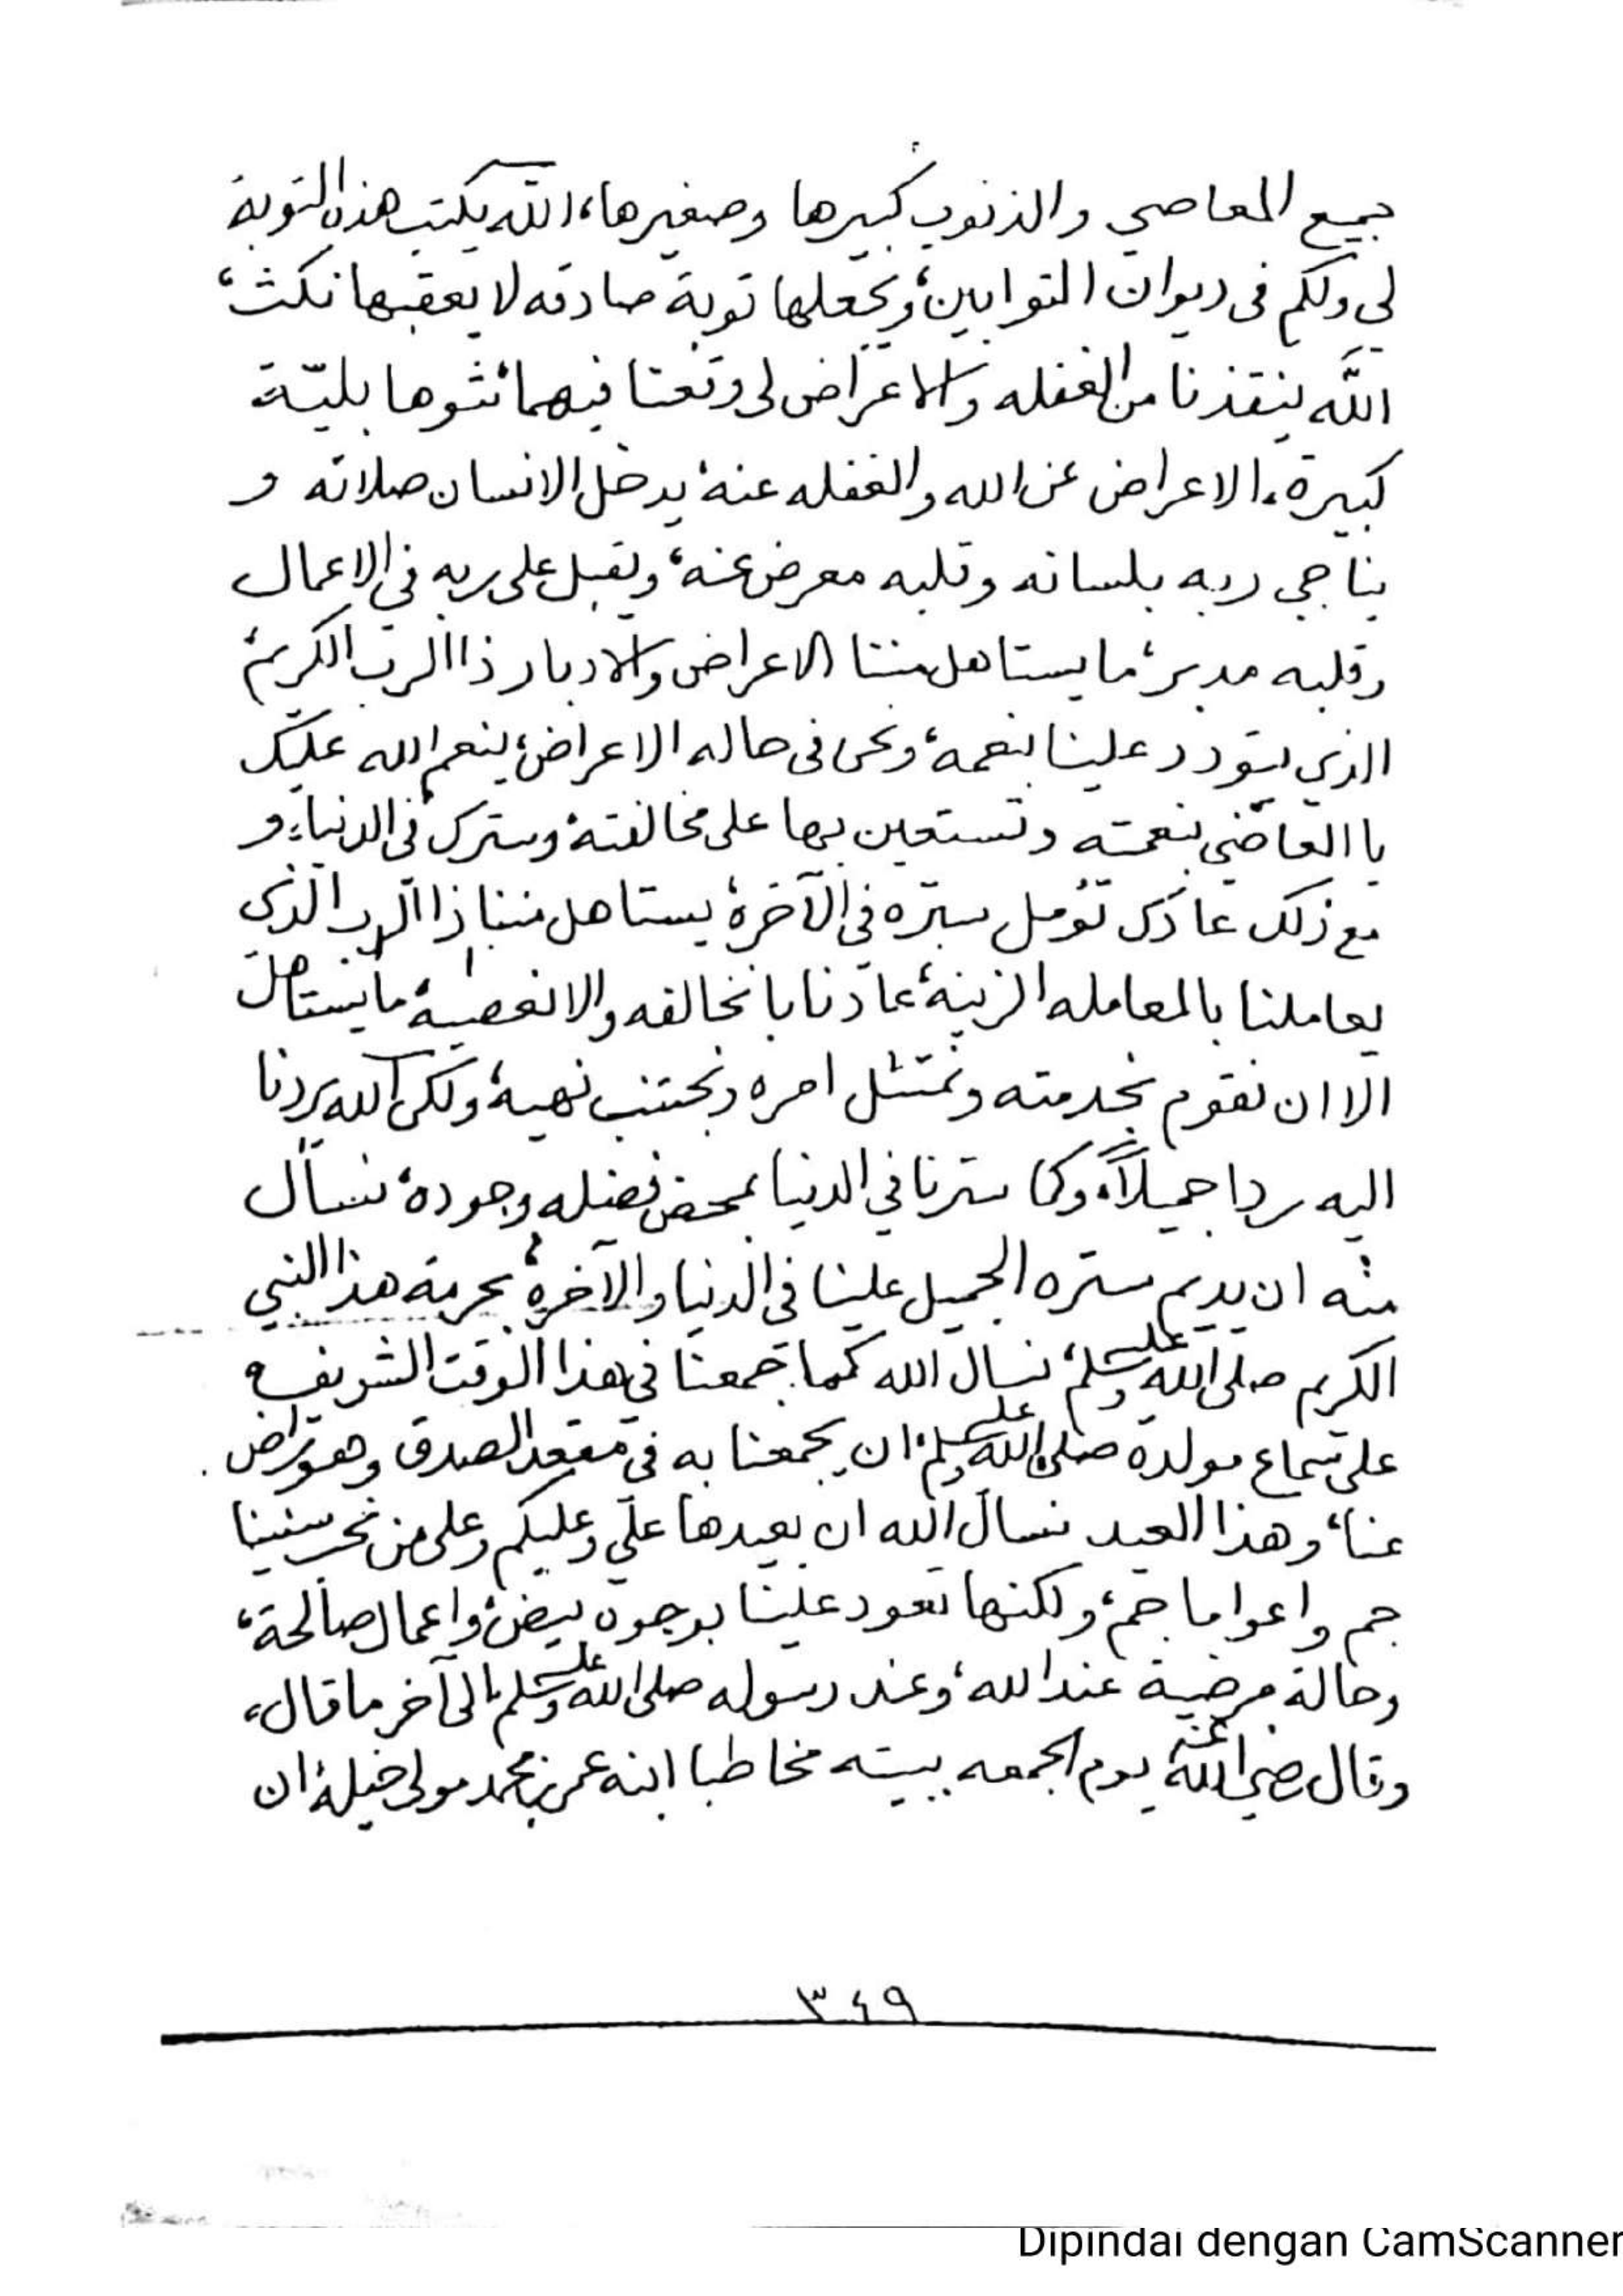 جميع المعاصي والذنوب كبيرها وصغيرها، الله يكتب هذه التوبة
لي ولكم فى ديوان التوابين، ويجعلها توبة صادقه لا يعقبها نكث،
الله ينقذنا من الغفله والاعراض لى وقعنا فيهما نثوها بليّة
كبيرة، الاعراض عن الله والغفله عنه، يدخل الانسان صلاته و
يناجي ربه بلسانه وقلبه معرض عنه، ويقبل على ربه في الاعمال
وقلبه مدبر، ما يستاهل مننا الاعراض والادبار ذا الرب الكريم،
الذي يتودد علينا بنعمه، ونحن فى حاله الاعراض، ينعم الله عليك
يا العاصي بنعمته وتستعين بها على مخالفته، وسترك فى الدنيا، و
مع ذلك عادك تؤمل ستره فى الآخرة، يستاهل مننا ذا الرب الذى
يعاملنا بالمعامله الزينة، عادنا بانخالفه والا نعصيه، ما يستاهل
الا ان نقوم بخدمته ونمتثل امره ونجتنب نهيه، ولكن الله يردنا
اليه ردا جميلاً، وكما سترنا في الدنيا بمحض فضله وجوده، نسأل
منه ان يديم ستره الجميل علينا فى الدنيا والآخرة، بحرمة هذا النبي
الكريم صلى الله عليه وسلم، نسال الله كما جمعنا فى هذا الوقت الشريف
على سماع مولده صلى الله عليه وسلم، ان يجمعنا به فى مقعد الصدق وهو راض
عنا، وهذا العيد نسال الله ان يعيدها علي وعليكم وعلى من نحب سنينا
جم واعواما جم، ولكنها تعود علينا بوجوه بيض، واعمال صالحة،
وحالة مرضية عند الله، وعند رسوله صلى الله عليه وسلم، الى آخر ما قال،
وقال رضي الله عنه يوم الجمعه ببيته مخاطبا ابنه عمر بن محمد مولى خيله، ان
٣٤٩
Dipindai dengan CamScanner